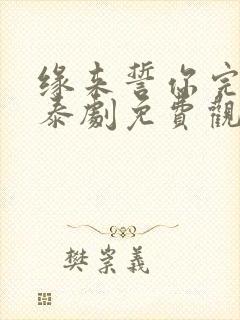 缘来誓你完
泰劇免費觀
樊崇義